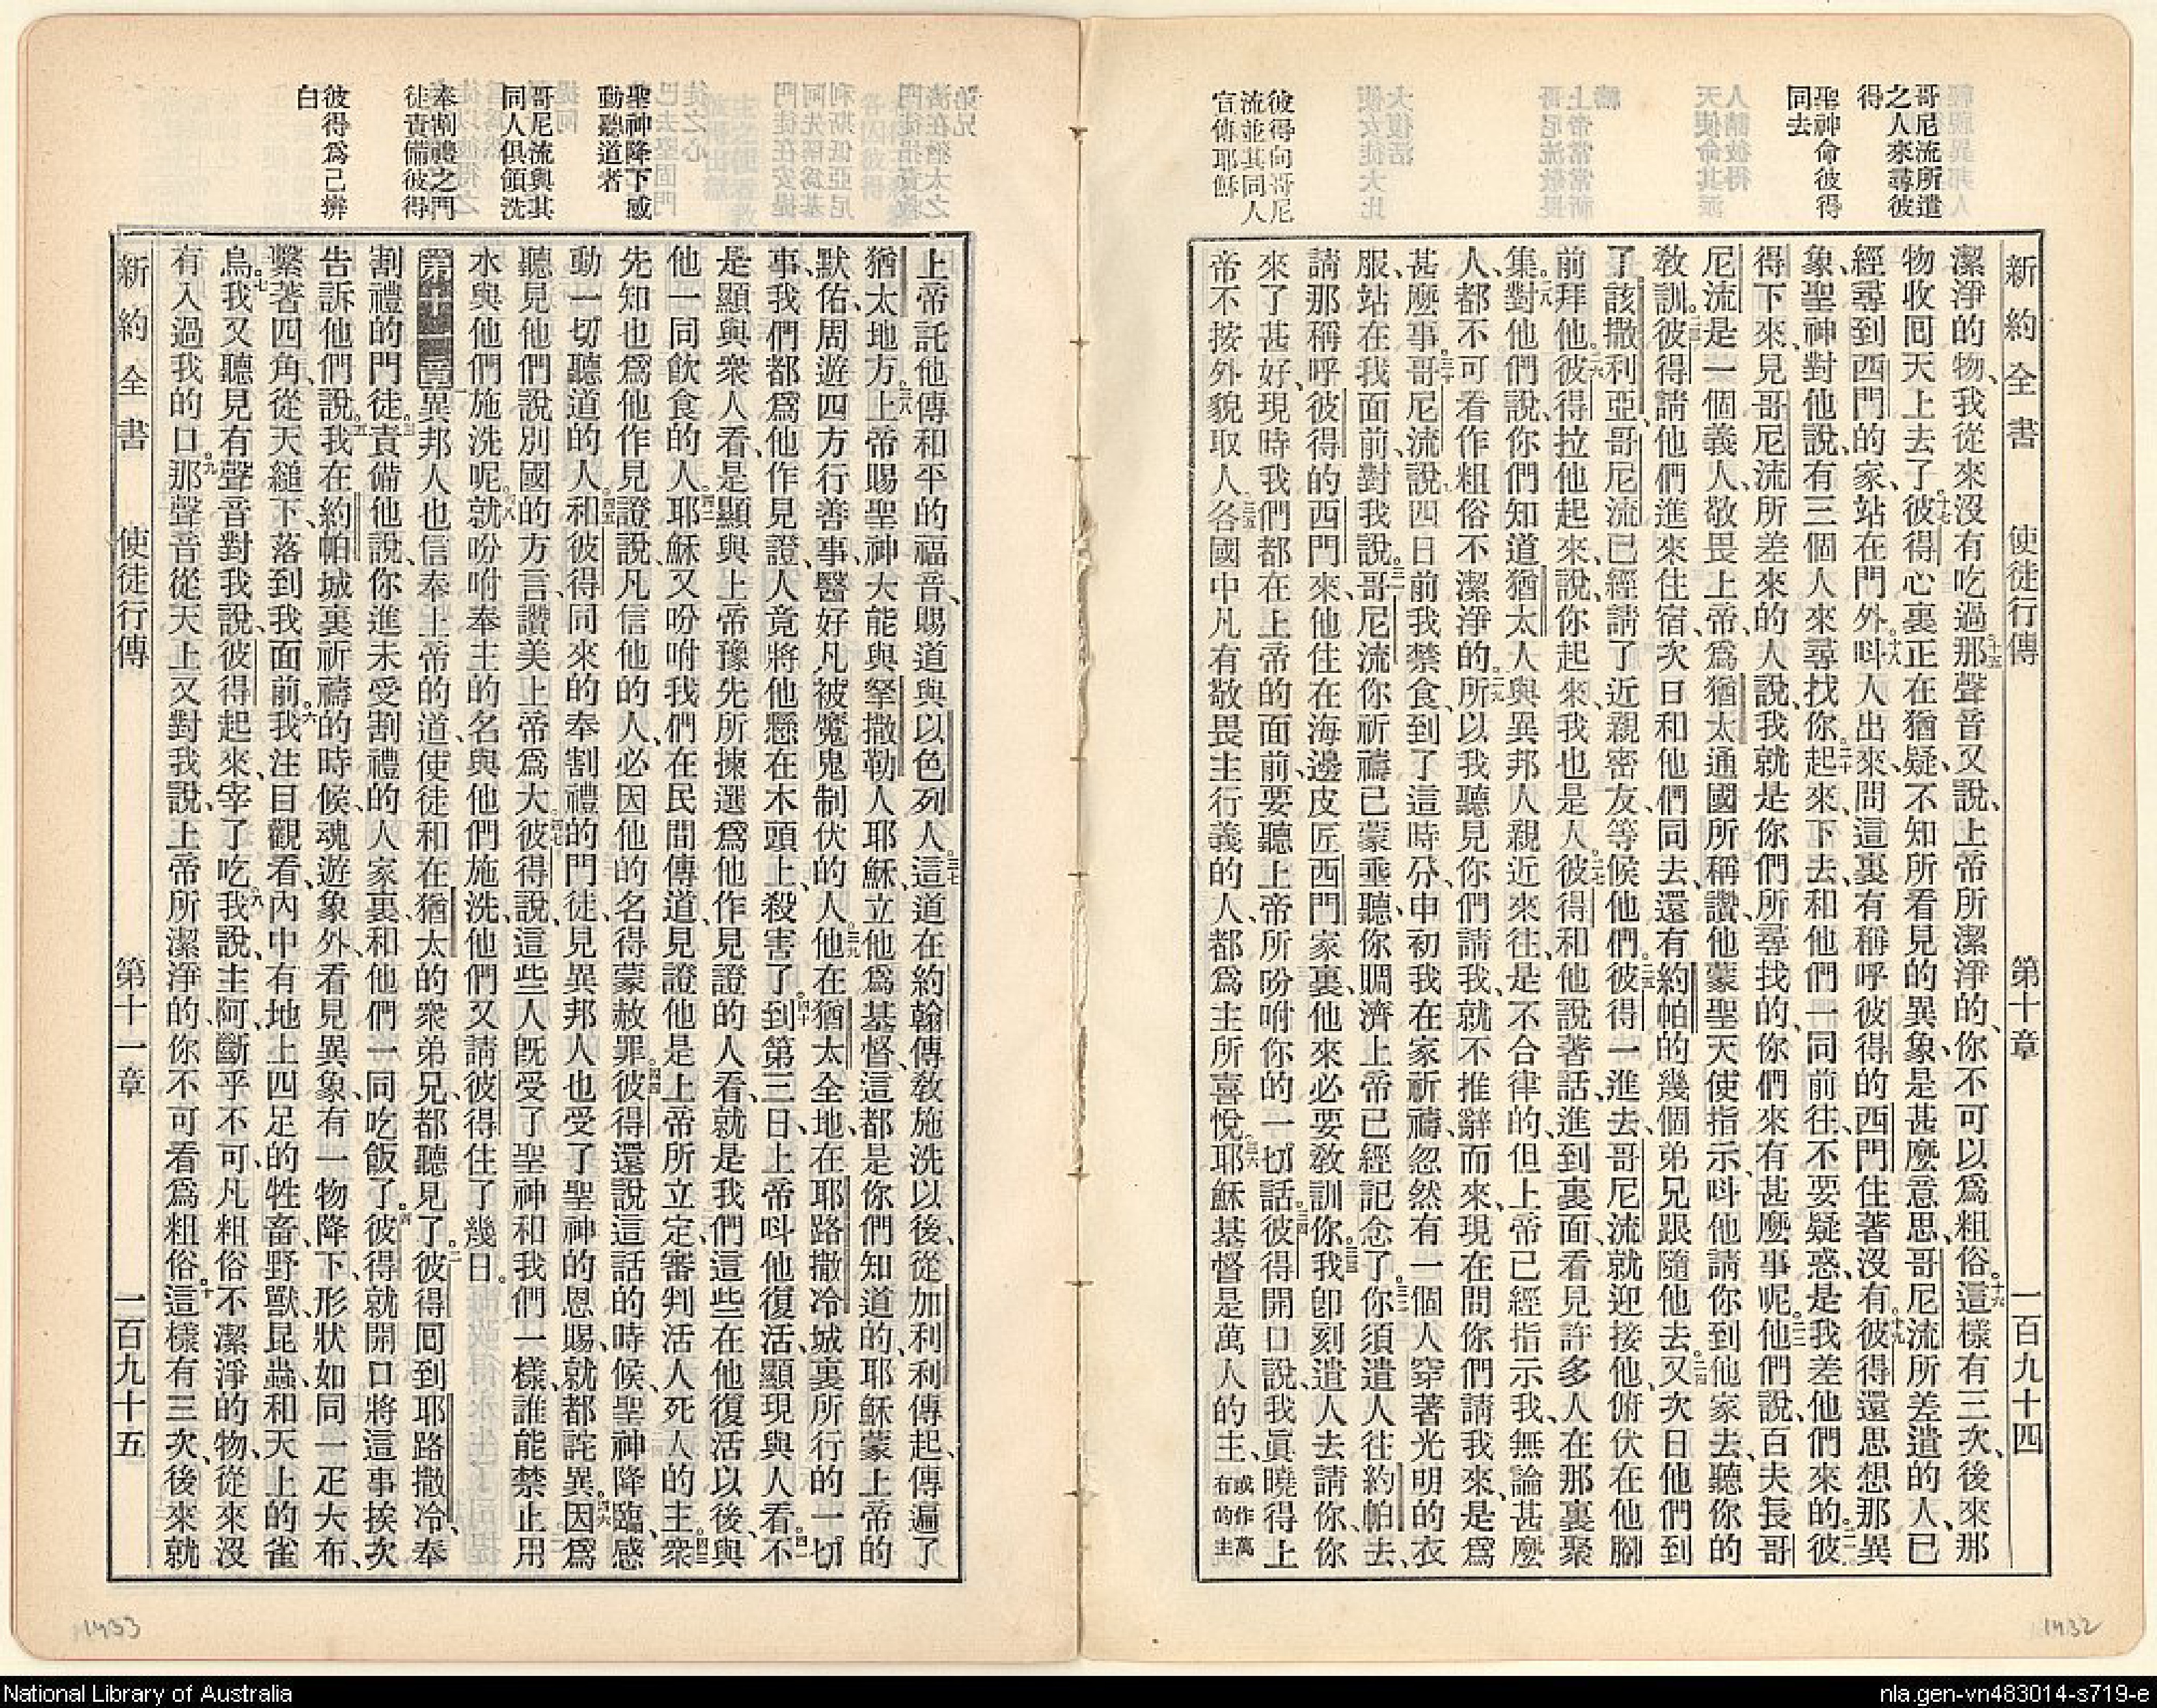 哥尼流所遣
之人來尋彼
得
聖神命彼得
同去
彼得向哥尼
流並其同人
宣傳耶穌
新約全書 使徒行傳 第十章 一百九十四
潔淨的物、我從來沒有吃過。十五那聲音又說、上帝所潔淨的、你不可以爲粗俗。十六這樣有三次、後來那
物收囘天上去了。十七彼得心裏正在猶疑、不知所看見的異象、是甚麼意思、哥尼流所差遣的人、已
經尋到西門的家、站在門外。十八呌人出來、問這裏有稱呼彼得的西門住著沒有。十九彼得還思想那異
象、聖神對他說、有三個人來尋找你。二十起來、下去、和他們一同前往、不要疑惑、是我差他們來的。二一彼
得下來、見哥尼流所差來的人說、我就是你們所尋找的、你們來有甚麼事呢。二二他們說、百夫長哥
尼流是一個義人、敬畏上帝、爲猶太通國所稱讚、他蒙聖天使指示、呌他請你到他家去、聽你的
敎訓。二三彼得請他們進來住宿、次日和他們同去、還有約帕的幾個弟兄跟隨他去。二四又次日他們到
了該撒利亞、哥尼流已經請了近親密友、等候他們。二五彼得一進去、哥尼流就迎接他、俯伏在他腳
前拜他。二六彼得拉他起來、說、你起來、我也是人。二七彼得和他說著話、進到裏面、看見許多人在那裏聚
集。二八對他們說、你們知道猶太人與異邦人親近來往、是不合律的、但上帝已經指示我、無論甚麼
人、都不可看作粗俗不潔淨的。二九所以我聽見你們請我、就不推辭而來、現在問你們請我來、是爲
甚麼事。三十哥尼流說、四日前我禁食、到了這時分、申初我在家祈禱、忽然有一個人穿著光明的衣
服、站在我面前、對我說。三一哥尼流、你祈禱已蒙垂聽、你賙濟上帝已經記念了。三二你須遣人往約帕去、
請那稱呼彼得的西門來、他住在海邊皮匠西門家裏、他來必要敎訓你。三三我卽刻遣人去請你、你
來了甚好、現時我們都在上帝的面前、要聽上帝所吩咐你的一切話。三四彼得開口說、我眞曉得上
帝不按外貌取人。三五各國中凡有敬畏主行義的人、都爲主所喜悅。三六耶穌基督是萬人的主、或作萬有的主
聖神降下感
動聽道者
哥尼流與其
同人俱領洗
奉割禮之門
徒責備彼得
彼得爲己辨
白
上帝託他傳和平的福音、賜道與以色列人。三七這道在約翰傳敎施洗以後、從加利利傳起、傳遍了
猶太地方。三八上帝賜聖神大能與拏撒勒人耶穌、立他爲基督、這都是你們知道的、耶穌蒙上帝的
默佑、周遊四方行善事、醫好凡被魔鬼制伏的人。三九他在猶太全地、在耶路撒冷城裏所行的一切
事、我們都爲他作見證、人竟將他懸在木頭上、殺害了。四十到第三日、上帝呌他復活、顯現與人看。四一不
是顯與衆人看、是顯與上帝豫先所揀選爲他作見證的人看、就是我們這些在他復活以後、與
他一同飮食的人。四二耶穌又吩咐我們在民間傳道、見證他是上帝所立定、審判活人死人的主。四三衆
先知也爲他作見證說、凡信他的人、必因他的名得蒙赦罪。四四彼得還說這話的時候、聖神降臨、感
動一切聽道的人。四五和彼得同來的奉割禮的門徒、見異邦人也受了聖神的恩賜、就都詫異。四六因爲
聽見他們說別國的方言、讚美上帝爲大。四七彼得說、這些人旣受了聖神和我們一樣、誰能禁止用
水與他們施洗呢。四八就吩咐奉主的名與他們施洗、他們又請彼得住了幾日。
第十一章 一異邦人也信奉上帝的道、使徒和在猶太的衆弟兄都聽見了。二彼得囘到耶路撒冷、奉
割禮的門徒。三責備他說、你進未受割禮的人家裏、和他們一同吃飯了。四彼得就開口將這事挨次
告訴他們說。五我在約帕城裏祈禱的時候、魂遊象外、看見異象、有一物降下、形狀如同一疋大布、
繫著四角、從天縋下、落到我面前。六我注目觀看、內中有地上四足的牲畜、野獸、昆蟲、和天上的雀
鳥。七我又聽見有聲音對我說、彼得起來、宰了吃。八我說、主阿、斷乎不可、凡粗俗不潔淨的物、從來沒
有入過我的口。九那聲音從天上又對我說、上帝所潔淨的、你不可看爲粗俗。十這樣有三次、後來就
新約全書 使徒行傳 第十一章 一百九十五
1433
1432
National Library of Australia
nla.gen-vn483014-s719-e